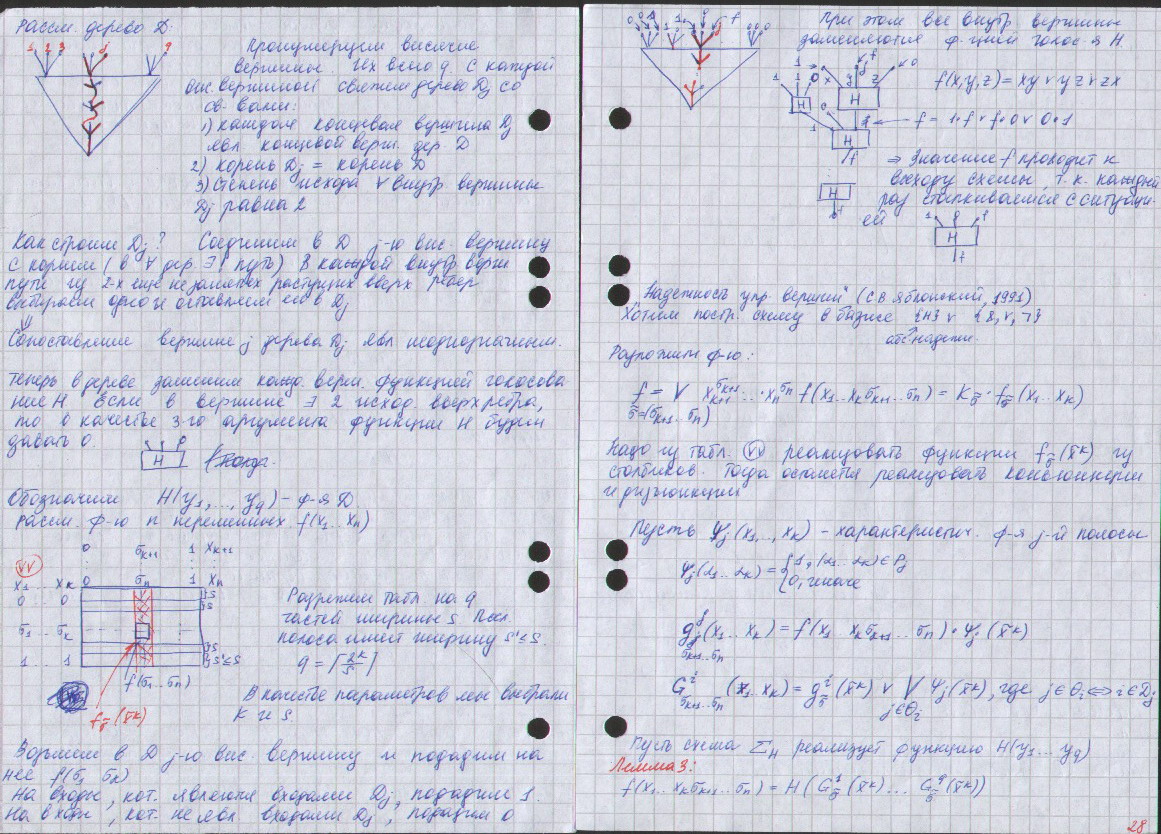 Рассм. дерево D:
1 2 3 j q
Пронумеруем висячие
вершины. Их всего q. С каждой
вис. вершиной свяжем дерево Dj со
св-вами:
1) каждая концевая вершина Dj
явл концевой верш. дер D
2) корень Dj = корень D
3) степень исхода ∀ внутр вершины
Dj равна 2
Как строим Dj? Соединим в D j-ю вис. вершину
с корнем (в ∀ дер. ∃! путь) В каждой внутр верш
пути из 2-х еще незанятых растущих вверх ребер
выбираем одно и оставляем его в Dj
⇓
Сопоставление вершине j дерева Dj явл неоднозначным.
Теперь в дереве заменим кажд. верш. функцией голосова
ния H Если в вершине ∃ 2 исход. вверх ребра,
то в качестве 3-го аргумента функции H будем
давать 0.
H
Обозначим H(y1,..., yq) - ф-я D
Рассм. ф-ю n переменных f(x1...xn)
0 σk+1 1 xk+1
VV
x1 ... xk 0 σn 1 xn
0 ... 0 }s
σ1 ... σk
}s
1 ... 1 }s'≤s
f(σ1...σn)
fσ̃(x̃k)
Разрежем табл. на q
частей ширины s. Посл.
полоса имеет ширину s'≤s.
q = ⌈2^k/s⌉
В качестве параметров мы выбрали
k и s
Возьмем в D j-ю вис. вершину и подадим на
нее f(σ1 σk)
На входы, кот. являются входами Dj, подадим 1.
На входы, кот. не явл входами Dj, подадим 0
При этом все внутр вершины
заменяются ф-цией голос-я H.
f(x,y,z) = xy ∨ yz ∨ zx
f = 1·f ∨ f·0 ∨ 0·1
⇒ Значение f проходит к
выходу схемы, т.к. каждый
раз сталкиваемся с ситуаци-
ей
H
"Надежность упр. вершин" (С В Яблонский, 1991)
Хотим постр. схему в базисе {H} ∨ {&,∨,¬}
абс надежн.
Разложим ф-ю:
f = ∨ xk+1^σk+1 ... · xn^σn f(x1...xk σk+1...σn) = Kσ̃ · fσ̃(x1...xk)
σ̃=(σk+1...σn)
Надо из табл. VV реализовать функции fσ̃(x̃k) из
столбиков. Тогда останется реализовать конъюнкции
и дизъюнкции
Пусть ψj(x1,.., xk) - характеристич. ф-я j-й полосы
ψj(α1...αk) = {1, (α1...αk) ∈ Pj
0, иначе
gj(x1...xk) = f(x1 xk σk+1...σn) · ψj(x̃k)
σk+1...σn
G^i (x1...xk) = g^i σ̃(x̃k) ∨ ∨ ψj(x̃k), где j∈Θi ⇔ i∈Dj
σk+1...σn j∈Θi
Пусть схема ΣH реализует функцию H(y1...yq)
Лемма 3:
f(x1...xk σk+1...σn) = H(G^1 σ̃(x̃k) ... G^q σ̃(x̃k))
28